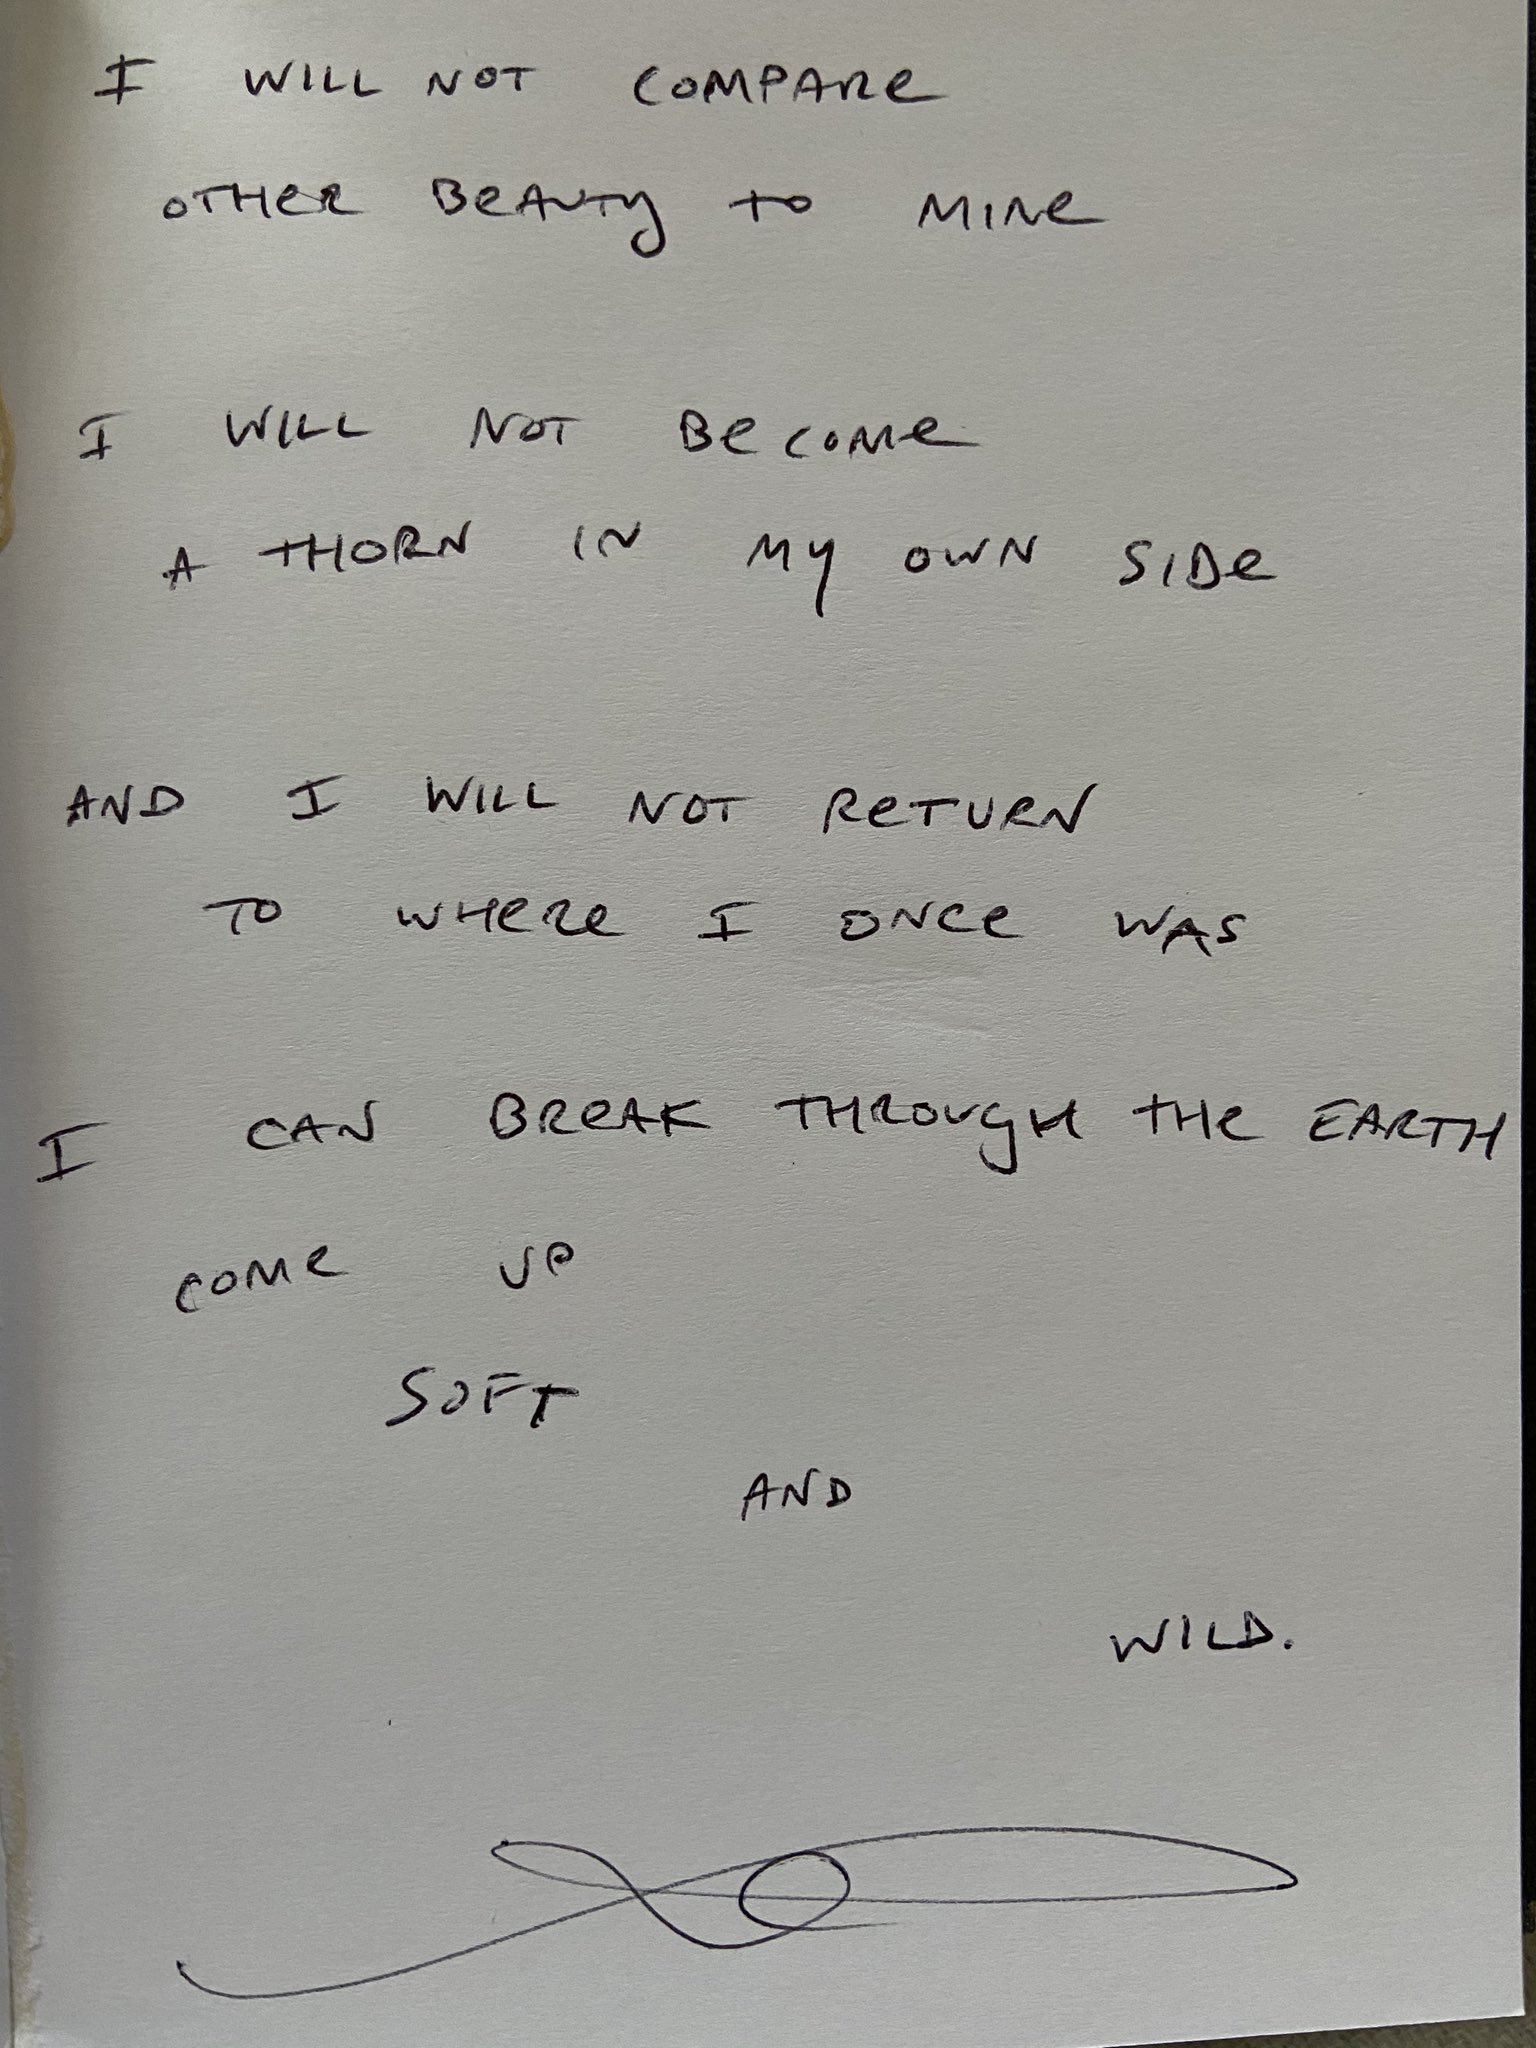 I WILL NOT COMPARE
OTHER BEAUTY TO MINE
I WILL NOT BECOME
A THORN IN MY OWN SIDE
AND I WILL NOT RETURN
TO WHERE I ONCE WAS
I CAN BREAK THROUGH THE EARTH
COME UP
SOFT
AND
WILD.